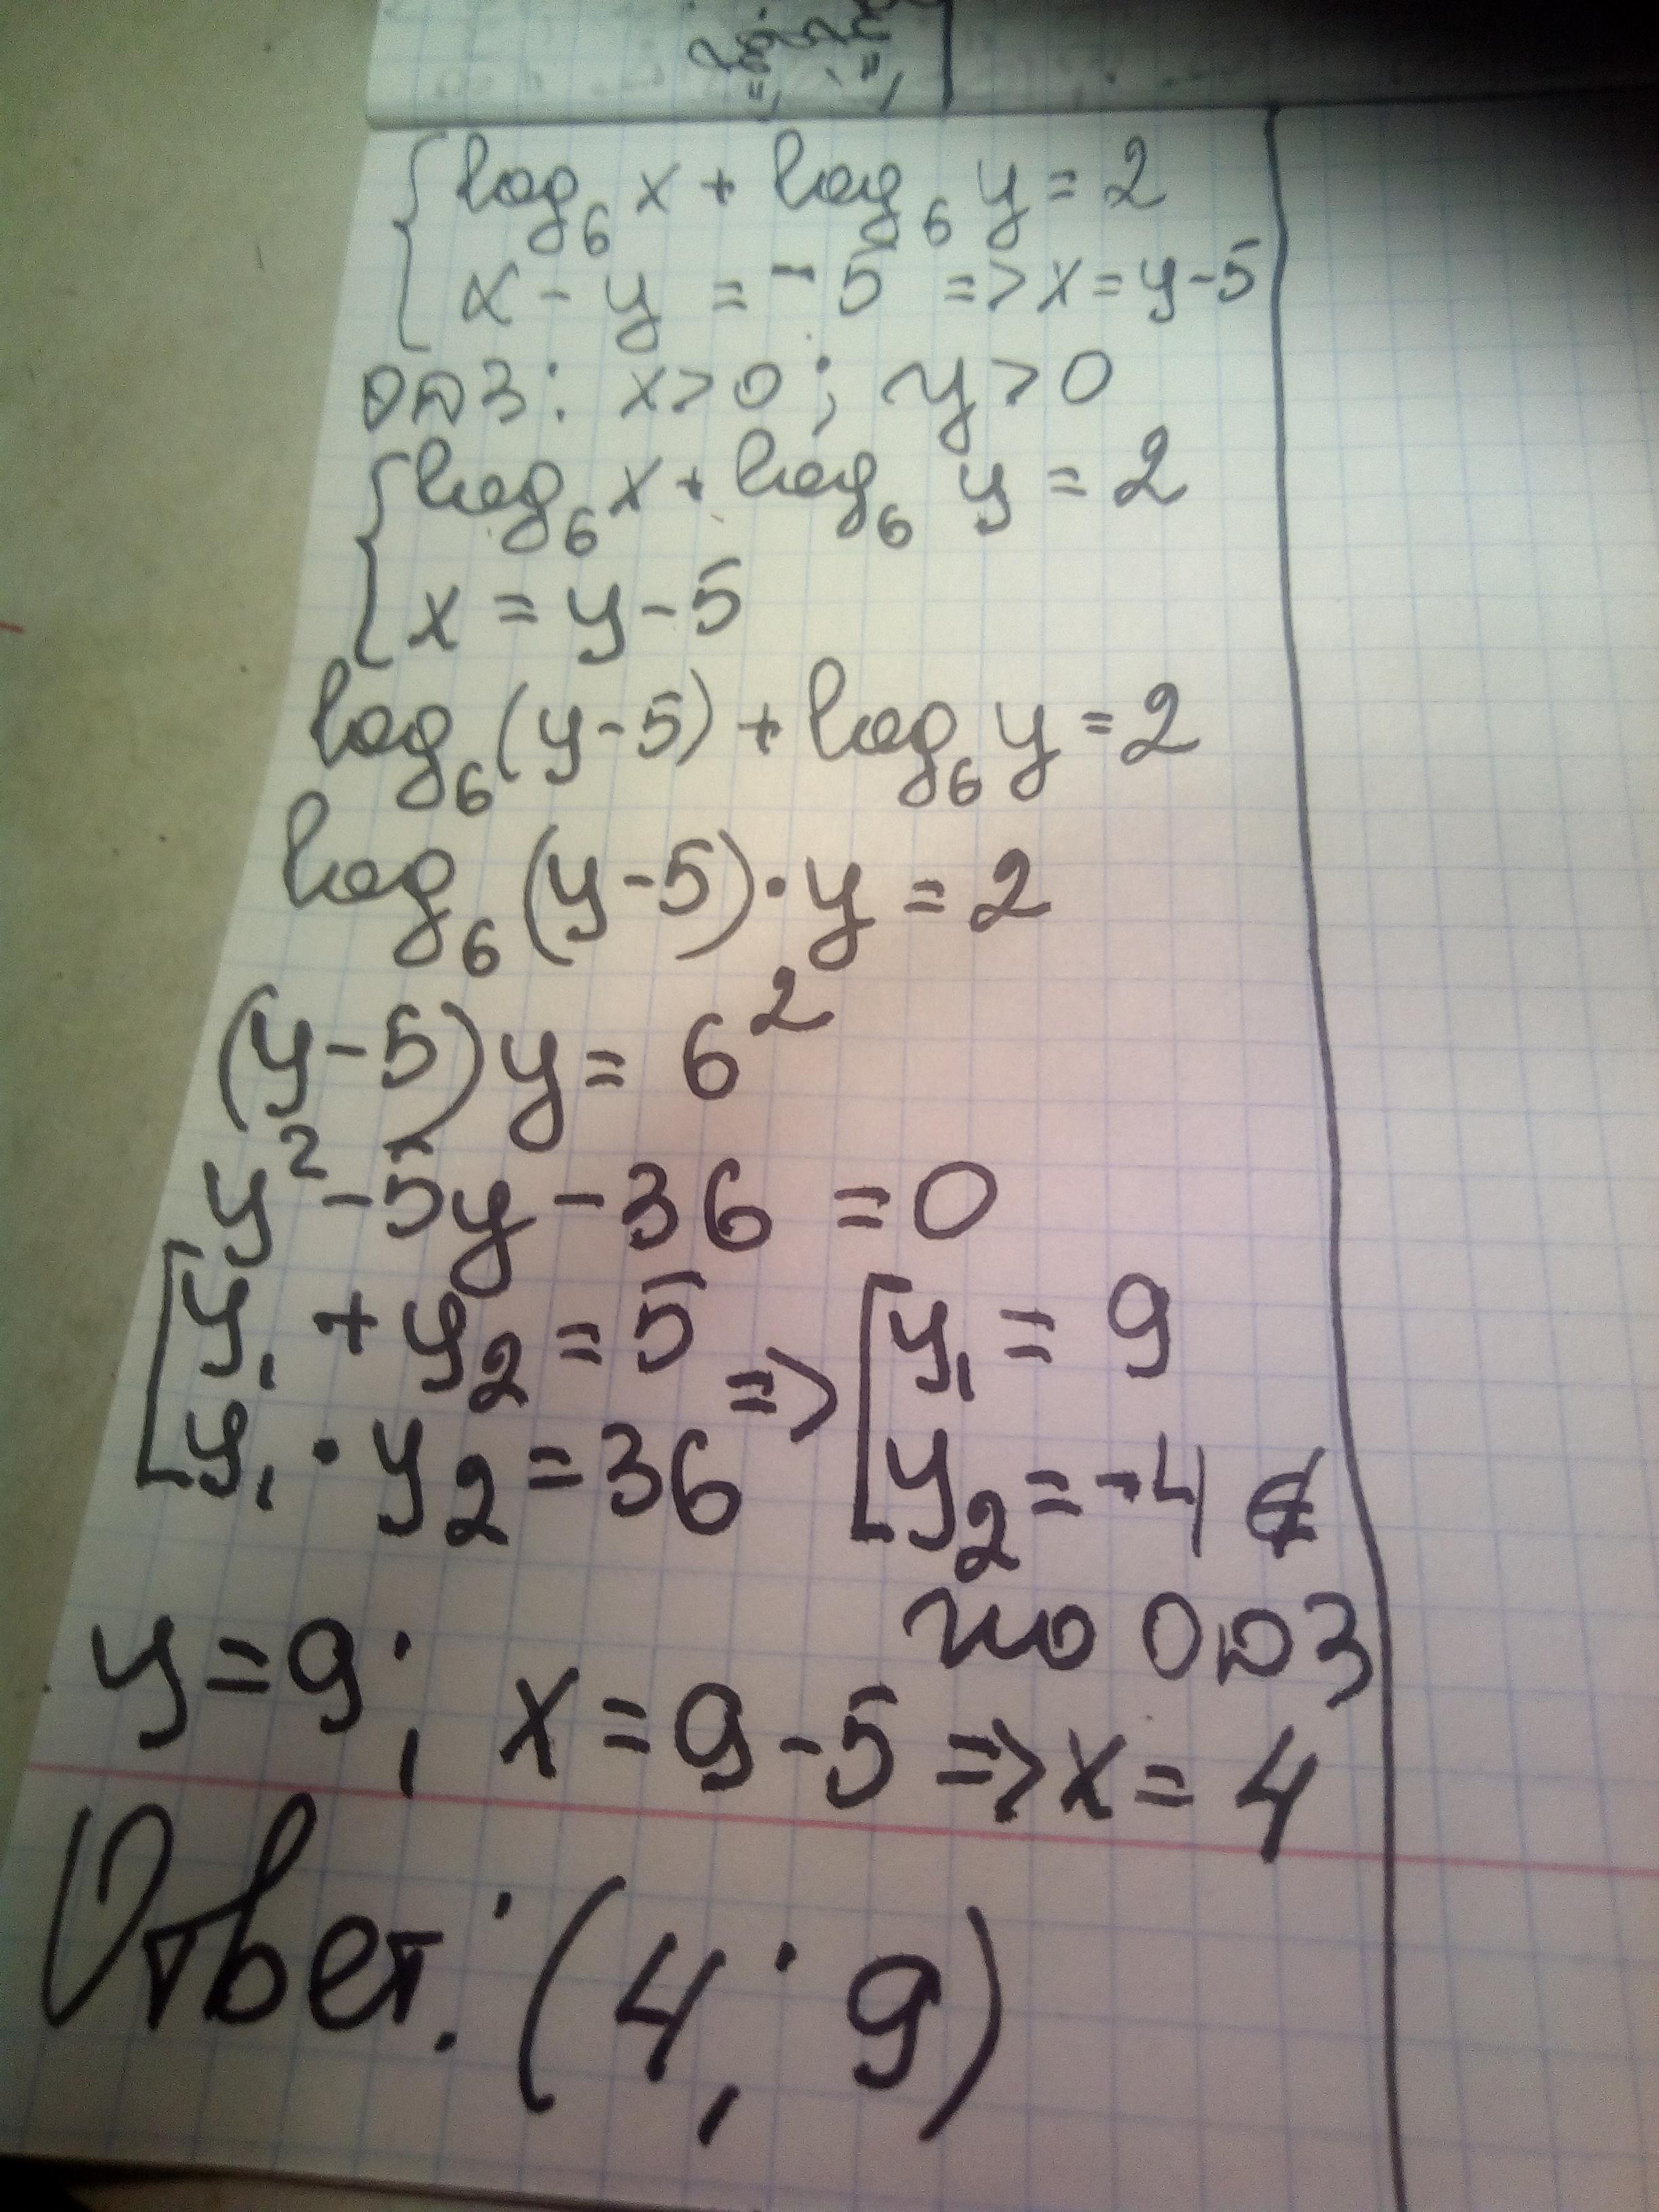 { log₆ x + log₆ y = 2
x - y = -5 => x = y - 5
ОДЗ: x > 0; y > 0
{ log₆ x + log₆ y = 2
x = y - 5
log₆ (y - 5) + log₆ y = 2
log₆ (y - 5) · y = 2
(y - 5) y = 6²
y² - 5y - 36 = 0
[ y₁ + y₂ = 5 => [ y₁ = 9
y₁ · y₂ = 36 y₂ = -4 ∉
по ОДЗ
y = 9; x = 9 - 5 => x = 4
Ответ: (4; 9)